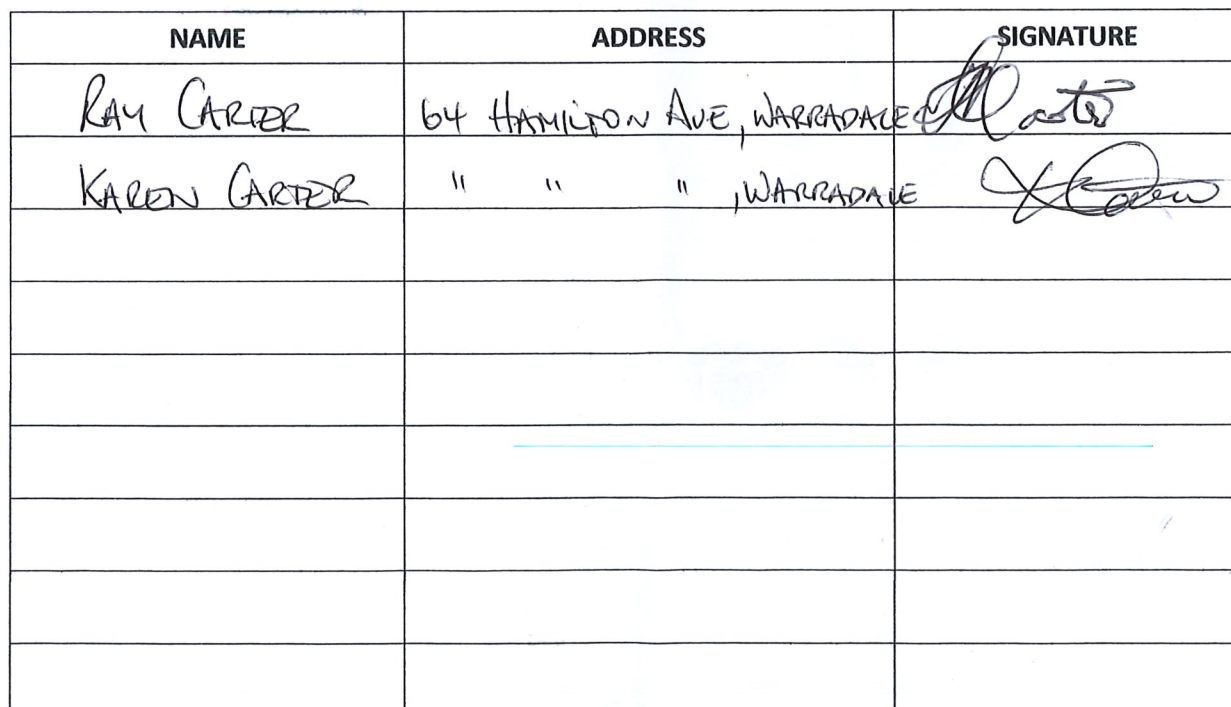 NAME ADDRESS SIGNATURE
RAY CARTER 64 HAMILTON AVE, WARRADALE
KAREN CARTER " " " , WARRADALE